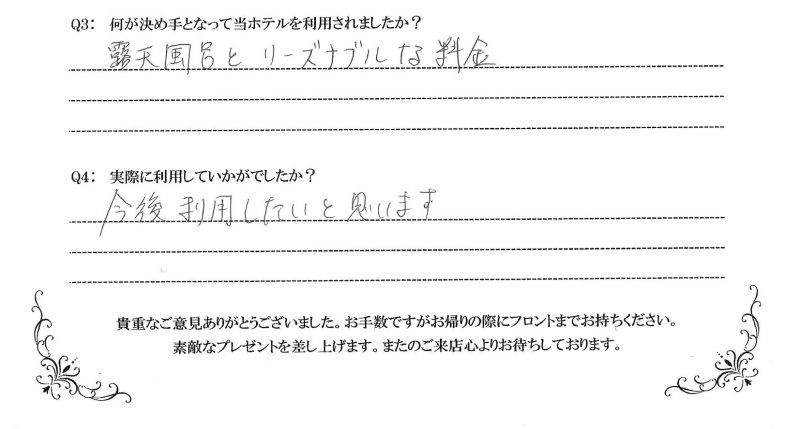 Q3： 何が決め手となって当ホテルを利用されましたか？
露天風呂と リーズナブルな料金
Q4： 実際に利用していかがでしたか？
今後利用したいと思います
貴重なご意見ありがとうございました。お手数ですがお帰りの際にフロントまでお持ちください。
素敵なプレゼントを差し上げます。またのご来店心よりお待ちしております。